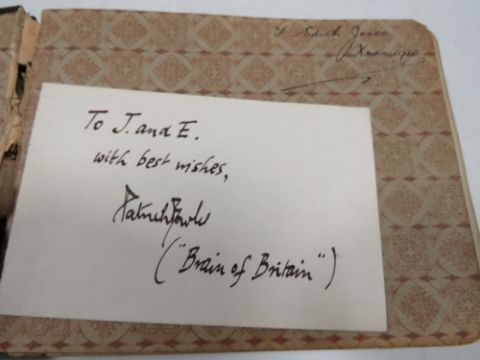 Edith Jones
Xmas 1920
To J. and E.
with best wishes,
Patrick Bowle
("Brain of Britain")